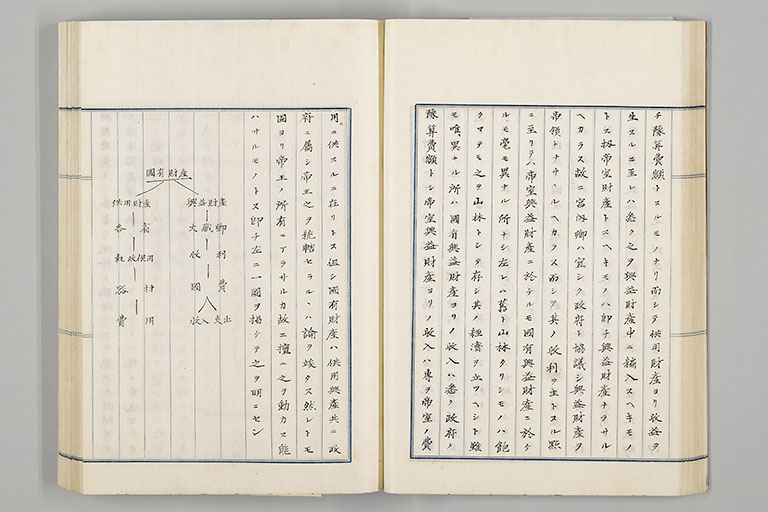 チ豫算費額トスルモノナリ而シテ供用財産ヨリ収益ヲ
生スルニ至レハ悉ク之ヲ興益財産中ニ編入スヘキモノ
トス扨帝室財産トスヘキモノハ即チ興益財産ナラサル
ヘカラス故ニ宮内卿ハ宜シク政府ト協議シ興益財産ヲ
帝領トナサヽルヘカラス而シテ其ノ収利ヲ主トスル點
ニ至リテハ帝室興益財産ニ於ケルモ國有興益財産ニ於ケ
ルモ毫モ異ナル所ナシ左レハ舊ト山林タリシモノハ飽
クマテモ之ヲ山林トシテ存シ其ノ經濟ヲ立ツヘシト雖
モ唯異ナル所ハ國有興益財産ヨリノ収入ハ悉ク政府ノ
豫算費額トシ帝室興益財産ヨリノ収入ハ專ラ帝室ノ費
用ニ供スルニ在リトス但シ國有財産ハ供用興産共ニ政
府ニ屬シ帝王之ヲ統轄セラルヽハ論ヲ竢タス然レトモ
固ヨリ帝王ノ所有ニアラサルカ故ニ擅ニ之ヲ動カス能
ハサルモノトス即チ左ニ一圖ヲ掲ケテ之ヲ明ニセン
國有財産
興益財産
大藏卿
収利
國費
収入支出
供用財産
各省
行政供用
器材
費用